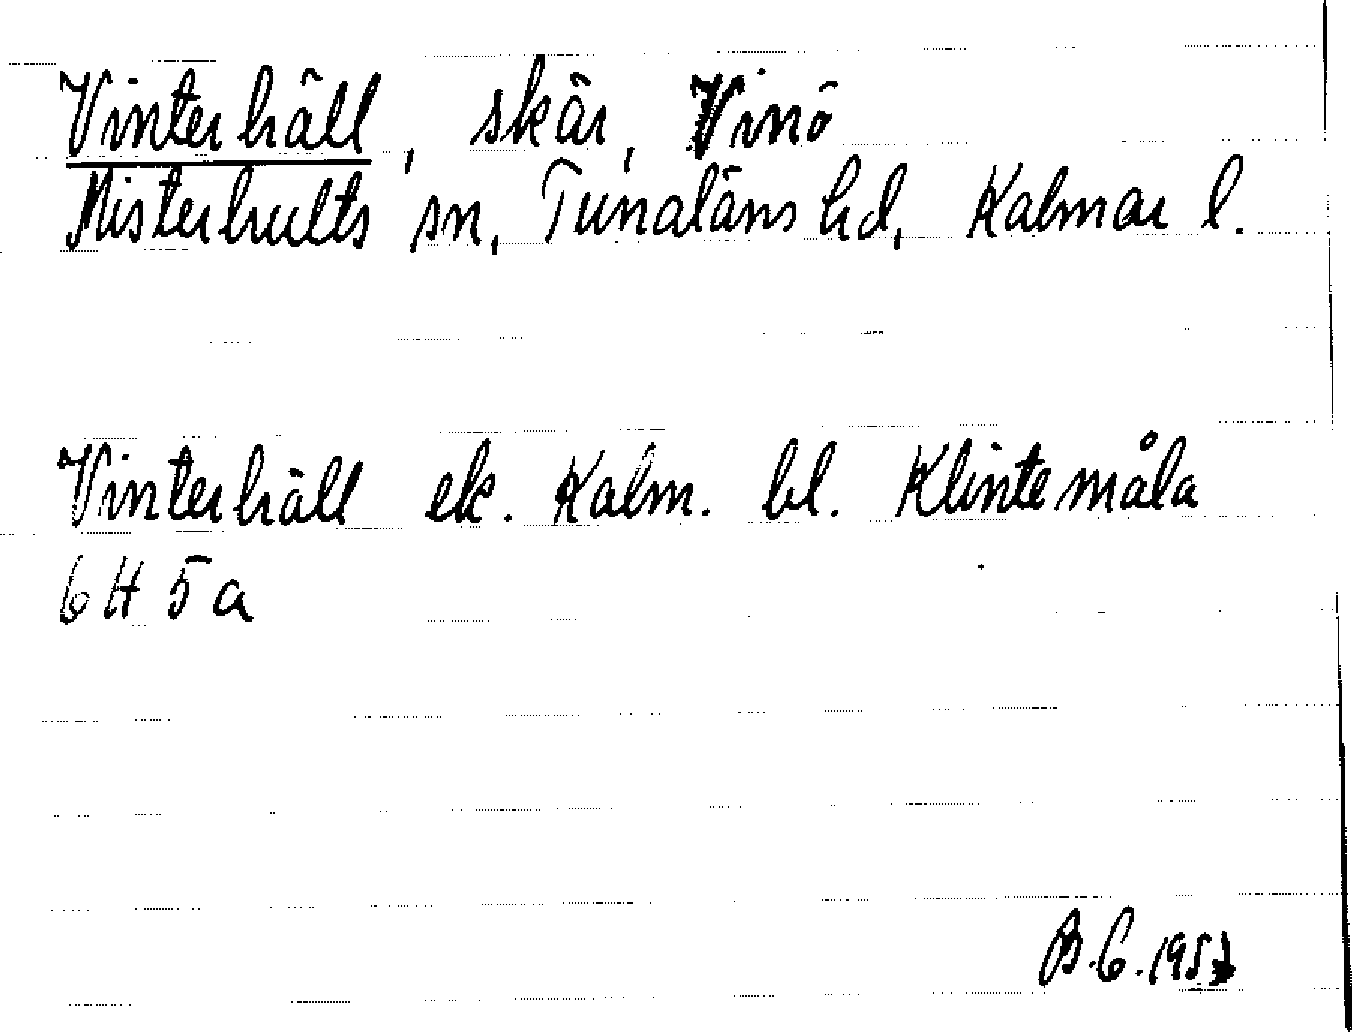 Vinterhäll, skär, Vinö
Misterhults sn, Tunaläns hd, Kalmar l.
Vinterhäll ek. Kalm. bl. Klintemåla
6H 5a
B.G.